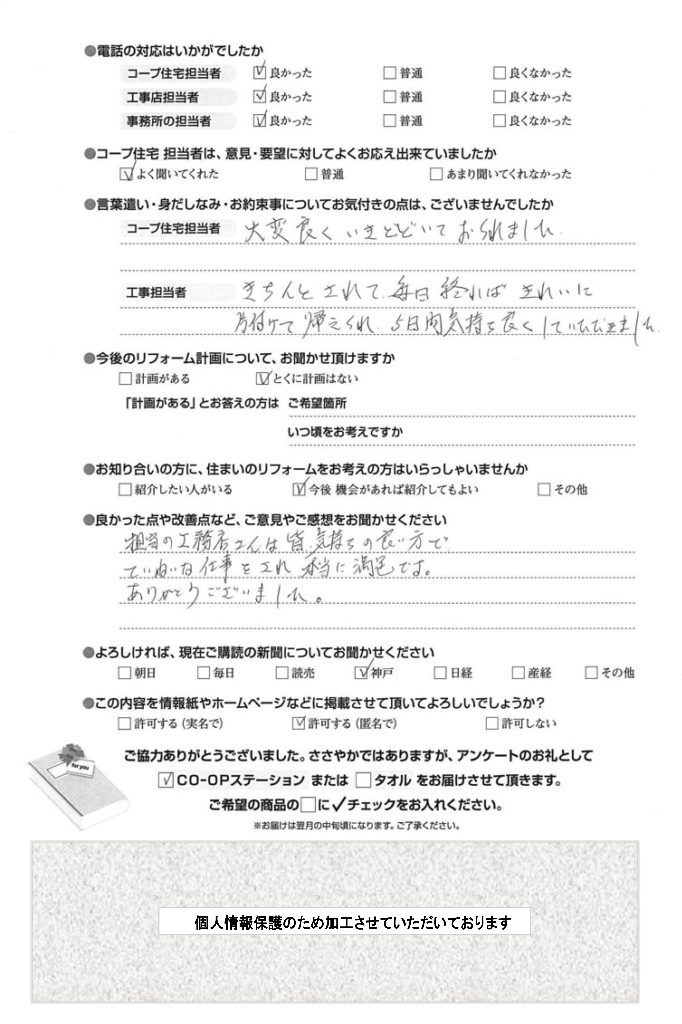 ●電話の対応はいかがでしたか
コープ住宅担当者 ☑良かった □普通 □良くなかった
工事店担当者 ☑良かった □普通 □良くなかった
事務所の担当者 ☑良かった □普通 □良くなかった
●コープ住宅 担当者は、意見・要望に対してよくお応え出来ていましたか
☑よく聞いてくれた □普通 □あまり聞いてくれなかった
●言葉遣い・身だしなみ・お約束事についてお気付きの点は、ございませんでしたか
コープ住宅担当者 大変良くいきとどいておられました
工事担当者 きちんとされて、毎日終れば きれいに
片付けて帰えられ、5日間気持ち良くしていただきました
●今後のリフォーム計画について、お聞かせ頂けますか
□計画がある ☑とくに計画はない
「計画がある」とお答えの方は ご希望箇所
いつ頃をお考えですか
●お知り合いの方に、住まいのリフォームをお考えの方はいらっしゃいませんか
□紹介したい人がいる ☑今後 機会があれば紹介してもよい □その他
●良かった点や改善点など、ご意見やご感想をお聞かせください
担当の工務店さんは皆、気持ちの良い方で
ていねいな仕事をされ 本当に満足です。
ありがとうございました。
●よろしければ、現在ご購読の新聞についてお聞かせください
□朝日 □毎日 □読売 ☑神戸 □日経 □産経 □その他
●この内容を情報紙やホームページなどに掲載させて頂いてよろしいでしょうか?
□許可する(実名で) ☑許可する(匿名で) □許可しない
for you
ご協力ありがとうございました。ささやかではありますが、アンケートのお礼として
☑CO-OPステーション または □タオル をお届けさせて頂きます。
ご希望の商品の□に✓チェックをお入れください。
※お届けは翌月の中旬頃になります。ご了承ください。
個人情報保護のため加工させていただいております